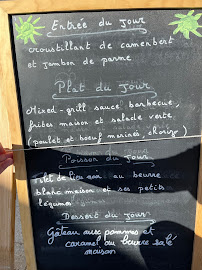 Entrée du Jour
croustillant de camembert
et jambon de parme
Plat du Jour
Mixed-grill sauce barbecue,
frites maison et salade verte
(poulet et boeuf marinés, chorizo)
Poisson du Jour
au beurre
blanc maison et ses petits
légumes
Dessert du jour
Gâteau aux pommes et
caramel au beurre salé
maison